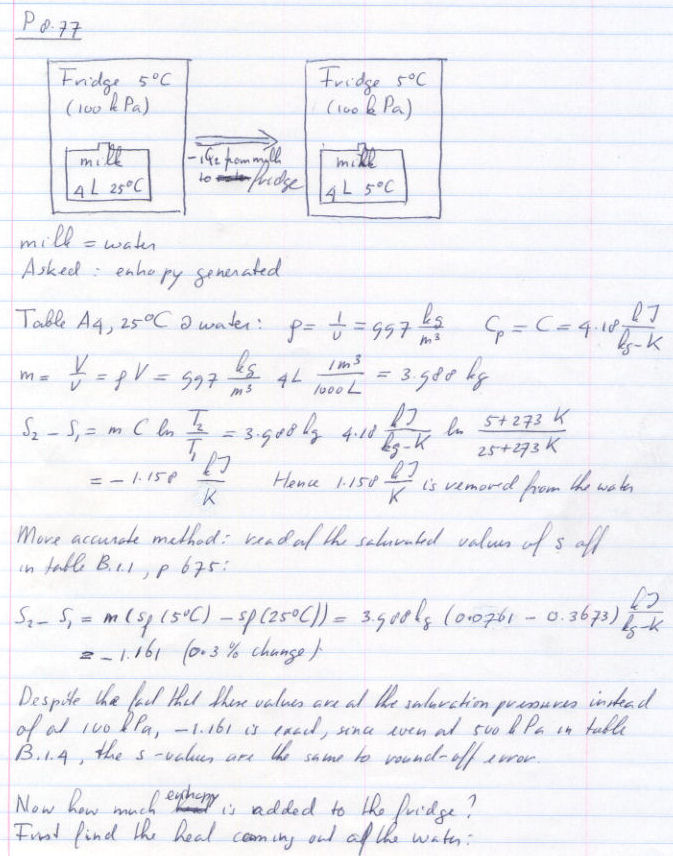 P 8.77
Fridge 5°C
(100 kPa)
milk
4 L 25°C
-1Q2 from milk
to fridge
Fridge 5°C
(100 kPa)
milk
4 L 5°C
milk = water
Asked : entropy generated
Table A4, 25°C @ water: ρ = 1/v = 997 kg/m³ Cp = C = 4.18 kJ/kg-K
m = V/v = ρV = 997 kg/m³ 4L 1m³/1000L = 3.988 kg
S2 - S1 = m C ln T2/T1 = 3.988 kg 4.18 kJ/kg-K ln 5+273 K/25+273 K
= - 1.158 kJ/K Hence 1.158 kJ/K is removed from the water
More accurate method: read of the saturated values of s off
in table B.1.1, p 675:
S2 - S1 = m (sf (5°C) - sf (25°C)) = 3.988 kg (0.0761 - 0.3673) kJ/kg-K
= - 1.161 (0.3 % change)
Despite the fact that these values are at the saturation pressures instead
of at 100 kPa, -1.161 is exact, since even at 500 kPa in table
B.1.4, the s-values are the same to round-off error.
Now how much entropy is added to the fridge?
First find the heat coming out of the water: